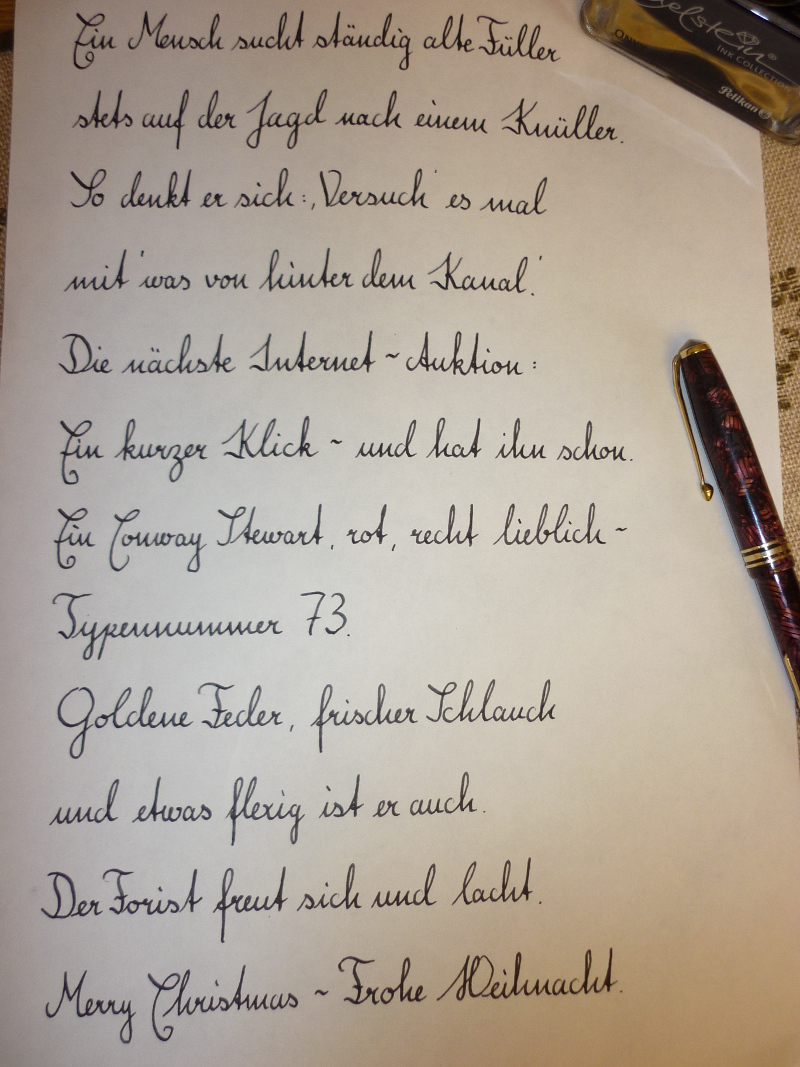 Edelstein
INK COLLECTION
Pelikan
Ein Mensch sucht ständig alte Füller
stets auf der Jagd nach einem Knüller.
So denkt er sich: ,Versuch' es mal
mit 'was von hinter dem Kanal.'
Die nächste Internet~Auktion:
Ein kurzer Klick ~ und hat ihn schon.
Ein Conway Stewart, rot, recht lieblich~
Typennummer 73.
Goldene Feder, frischer Schlauch
und etwas flexig ist er auch.
Der Forist freut sich und lacht.
Merry Christmas ~ Frohe Weihnacht.